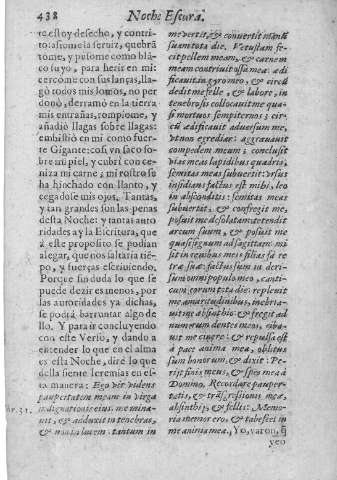 438 Noche Escura.
to estoy desecho, y contri-
to: asiome la ceruiz, quebrā
tòme, y pusome como blāco
suyo, para herir en mi:
cercòme con sus lanças, llagò
todos mis lomos, no perdonò,
derramò en la tierra
mis entrañas, rompiome, y
añadiò llagas sobre llagas:
embistiò en mi como fuerte
Gigante: così vn saco sobre
mi piel, y cubrì con ceniza
mi carne; mi rostro se
ha hinchado con llanto, y
cegadose mis ojos. Tantas,
y tan grandes son las penas
desta Noche: y tantas autoridades
ay la Escritura, que
à este proposito se podian
alegar, que nos saltaria tiẽpo,
y fuerças escriuiendo.
Porque sin duda lo que se
puede dezir es menos, por
las autoridades ya dichas,
se podrà barruntar algo dello.
Y para ir concluyendo
con este Verso, y dando a
entender lo que en el alma
es esta Noche, dirè lo que
della siente Jeremias en esta
manera: Ego vir videns
paupertatem meam in virga
indignationis eius. me mina-
uit, & adduxit in tenebras,
& non in lucem. tantum in
me vertit, & conuertit manũ
suam tota die. Vetustam fecit
pellem meam, & carnem
meam contriuit ossa mea: ædificauit
in gyro meo, & circũdedit
me felle, & labore, in
tenebrosis collocauit me quasi
mortuos sempiternos; circũ
ædificauit aduersum me,
vt non egrediar: aggrauauit
compedem meum; conclusit
vias meas lapidibus quadris,
semitas meas subuertit: vrsus
insidians factus est mihi, leo
in absconditis: semitas meas
subuertit, & confregit me,
posuit me desolatam: tetendit
arcum suum, & posuit me
quasi signum ad sagittam: misit
in renibus meis filias faretræ
suæ: factus sum in derisum
omni populo meo, canticum
eorum tota die: repleuit
me amaritudinibus, inebriauit
me absinthio: & fregit ad
numerum dentes meos, cibauit
me cinere: & repulsa est
à pace anima mea, oblitus
sum bonorum, & dixit: Perijt
finis meus, & spes mea à
Domino. Recordare paupertatis,
& trãsgressionis meæ,
absinthij, & fellis: Memoria
memor ero, & tabescet in
me anima mea, Yo, varon, q̃
veo